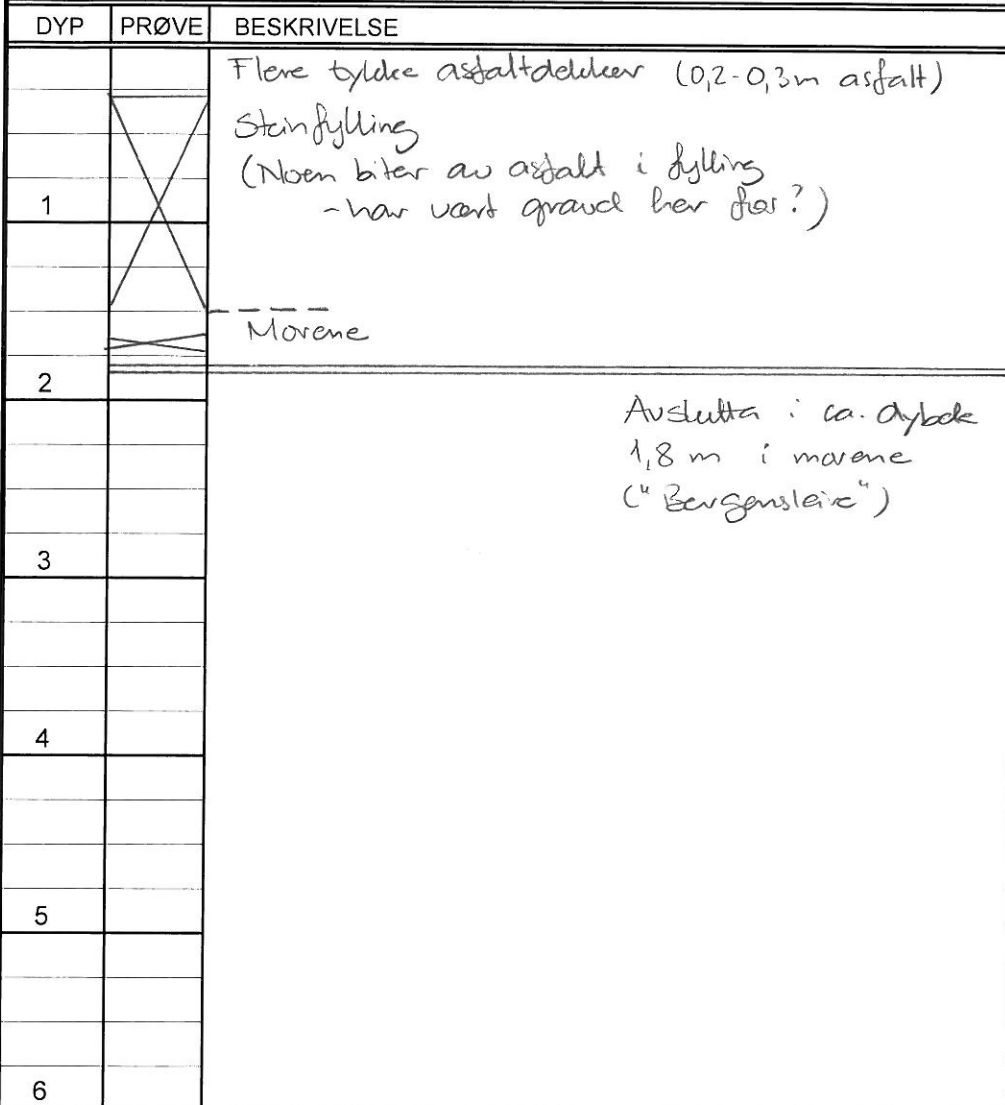 DYP PRØVE BESKRIVELSE
Flere tykke asfaltdekker (0,2-0,3m asfalt)
Steinfylling
(Noen biter av asfalt i fylling
1 - har vært gravd her før?)
Morene
2
Avslutta i ca. dybde
1,8 m i morene
("Bergensleire")
3
4
5
6